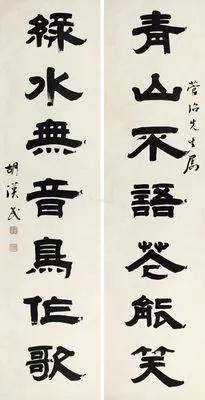 青山不語花能笑
菅治先生属
綠水無音鳥作歌
胡漢民